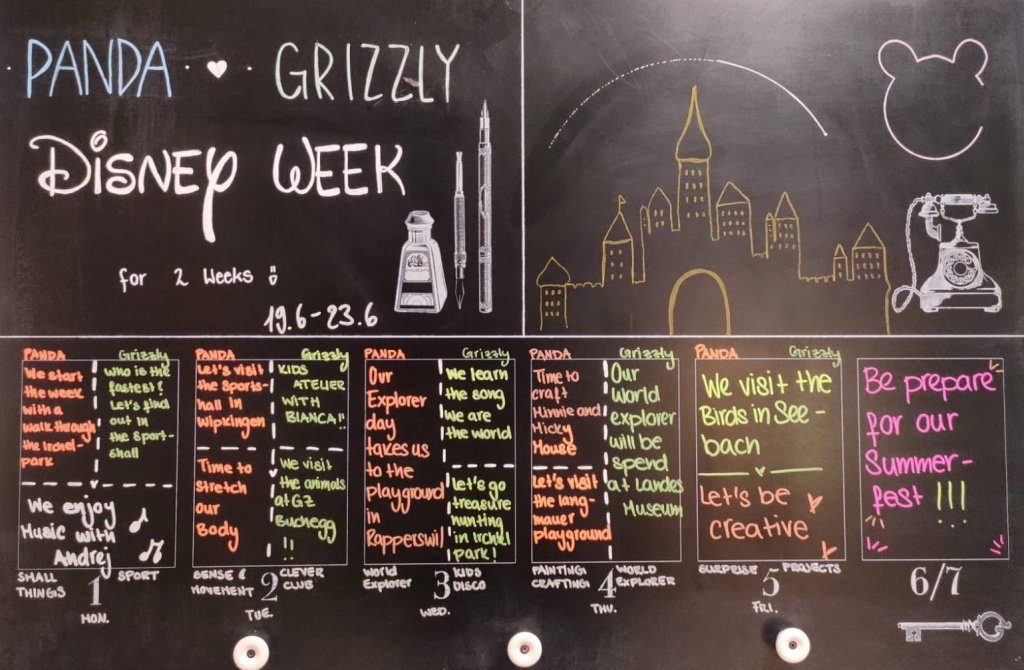 PANDA · ♥ · GRIZZLY
Disney WEEK
for 2 Weeks
19.6-23.6
PANDA
We start
the week
with a
walk through
the Irchel-
park
Grizzly
who is the
fastest?
Let's find
out in
the Sport-
shall
We enjoy
Music with
Andrej
SMALL
THINGS
SPORT
1
MON.
PANDA
Let's visit
the sports-
hall in
Wipkingen
Time to
Stretch
our
Body
Grizzly
KIDS
ATELIER
WITH
BIANCA!!
We visit
the animals
at GZ
Buchegg
!!
SENSE &
MOVEMENT
CLEVER
CLUB
2
TUE.
PANDA
Our
Explorer
day
takes us
to the
playground
in
Rapperswil
Grizzly
We learn
the song
we are
the world
let's go
treasure
hunting
in Irchel
park!
World
Explorer
KIDS
DISCO
3
WED.
PANDA
Time to
craft
Minnie and
Micky
Mouse
Let's visit
the lang-
mauer
playground
Grizzly
Our
world
explorer
will be
spend
at Landes
Museum
PAINTING
CRAFTING
WORLD
EXPLORER
4
THU.
PANDA
Grizzly
We visit the
Birds in See-
bach
Let's be
creative
SURPRISE PROJECTS
5
FRI.
Be prepare
for our
Summer-
fest !!!
6/7